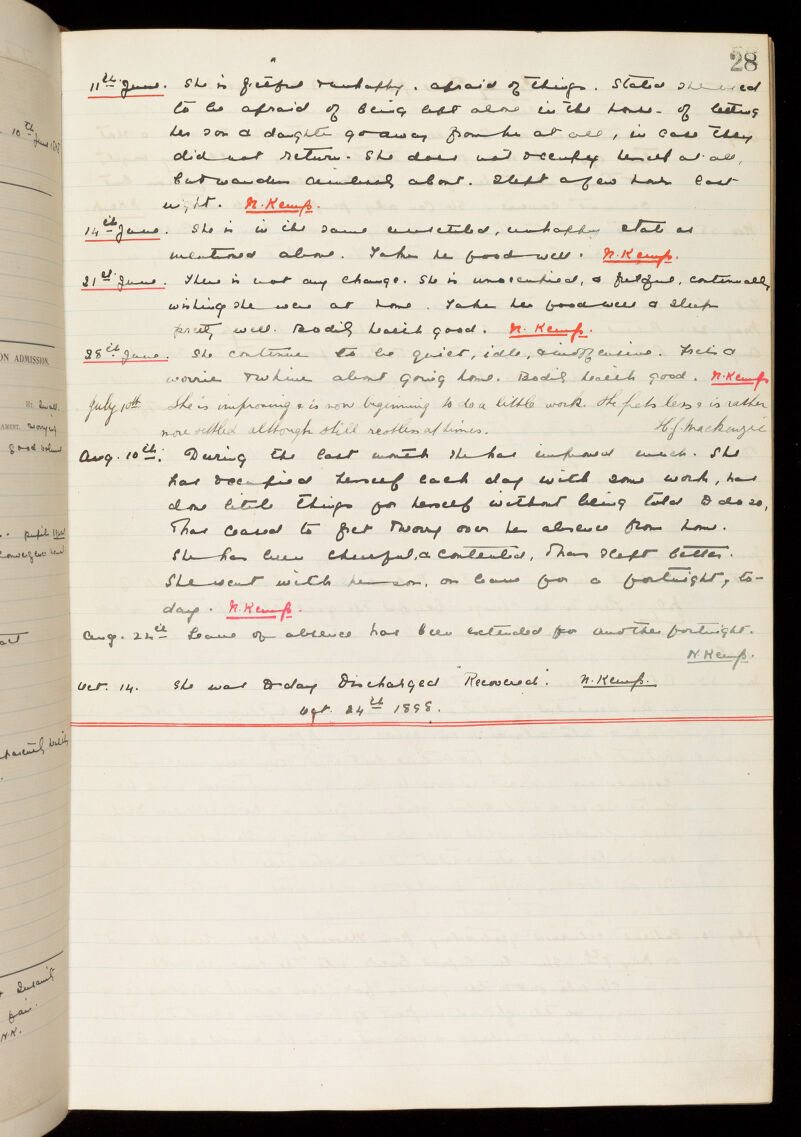 28
11th June. She is fretful & unhappy. afraid of things. Stated she used
to be afraid of being left alone in the house - of letting
her son & daughter go away from her at all, in case they
did not return. She does not occupy herself at all,
but wanders aimlessly about. Slept a few hours last
night. N. Kemp.
14th June. She is in the same unsettled, unhappy state as
mentioned above. Takes her food well. N. Kemp.
21st June. There is not any change. She is unoccupied, & fretful, continually
wishing she were at home. Takes her food well & sleeps
pretty well. Bodily health good. N. Kemp.
28th June. She continues to be quiet, idle, & inoffensive. Frets &
worries & whines about going home. Bodily health good. N. Kemp
July 10th She is improving & is now beginning to do a little work. She frets less & is rather
more settled although still restless at times. H.J. Mackenzie
Aug. 10th: During the last month she has improved much. She
has occupied herself each day with some work, has
done little things for herself without being told to do so,
& has ceased to fret & worry over her absence from home.
She has been cheerful, & contented, & has slept better.
She went with her son, on leave for a fortnight, to-
day. N. Kemp.
Aug. 24th Leave of absence has been extended for another fortnight.
N. Kemp.
Oct. 14. She was to-day Discharged "Recovered". N. Kemp.
Oct. 24th 1898.
10th June 1898
ON ADMISSION.
Ht. Small.
AMENT. worrying
good
pupils
act
Insanity
fair.
N.K.